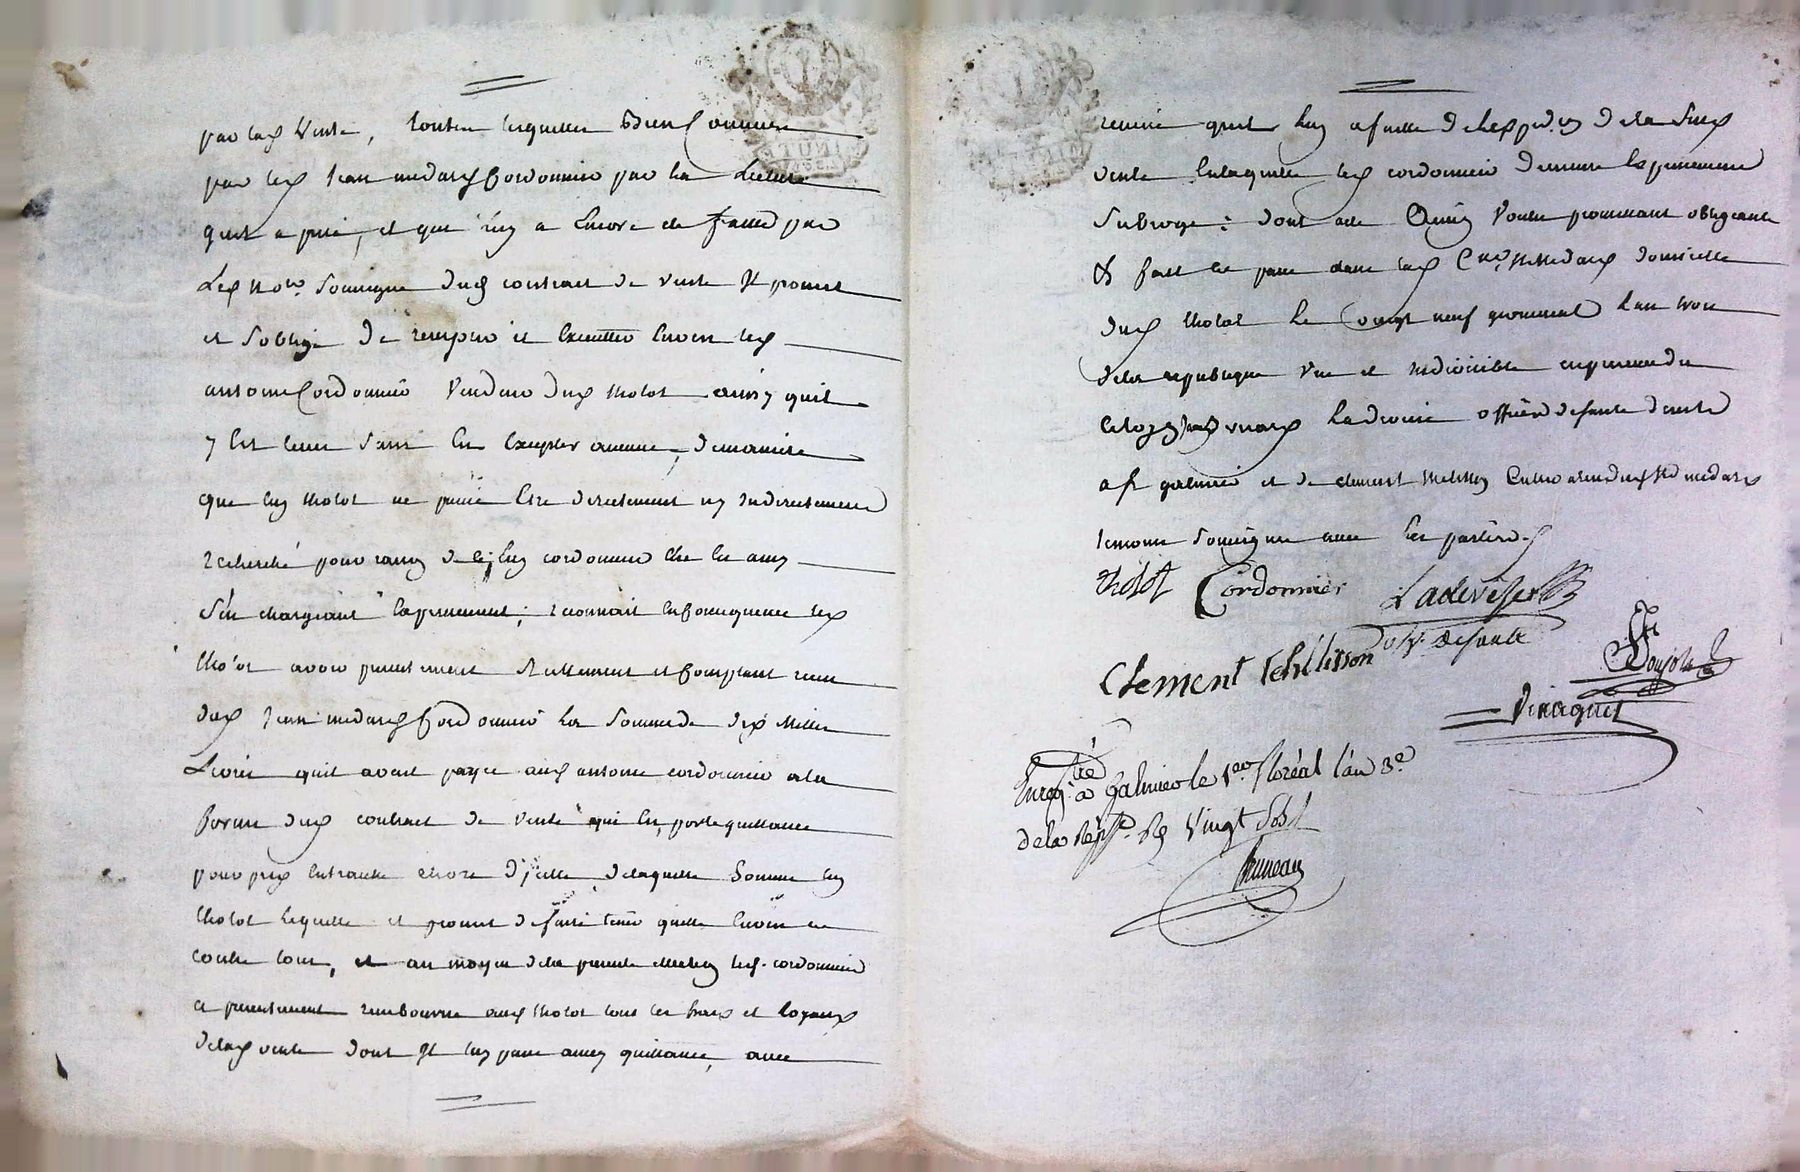 par lad vente, toutes lesquelles bien connues
par led Jean medard Cordonnier par la Lecture
quil a prié, et que luy a Encore de faitte par
Led No.re Soussigné dud contrat de vente Il promet
et Soblige de remplir et Executter Envers led
antoine Cordonnier Vendeur dud tholot ainsy quil
y Est tenu Sans En Excepter aucune, demaniere
que led tholot ne puisse Etre directement ny Indirectement
recherché pour raison de led cordonnier
S'en chargeant Expressement; reconnait En Consequence led
tholot avoir presentement reellement et Comptant receu
dud Jean medard Cordonnier La Somme de dix Mille
Livres quil avoit payée aud antoine cordonnier ala
forme dud contrat de vente qui En porte quittance
pour prix Entrante de laquelle Somme led
tholot Lequitte et promet de faire tenir quitte Envers et
contre tous, et au moyen dela presente led cordonnier
a presentement rembourcé aud tholot tous les frais et loyaux
delad vente dont Il luy passe aussy quittance, avec
remise quil luy a faitte de Lexpedon dela Susd
vente En laquelle led cordonnier demeure Expressement
Subrogé; dont acte Ainsy Voulu promettant obligeant
& fait et passé dans lad Cne St Medard domicille
dud tholot Le vingt neuf germinal L'an trois
dela republique Une et Indivisible en presence du
citoyen Ladevise officier de santé
a St galmier et de clement thelisson Cultivateur dud St medard
temoins Soussignés avec les parties.
tholot Cordonnier Ladevise
offr. de santé
Clement tehélisson
Vinaigrier
Enregtré a Galmier le 1er floréal l'an 3e
dela Répque Rs Vingt Sols
Bruneau